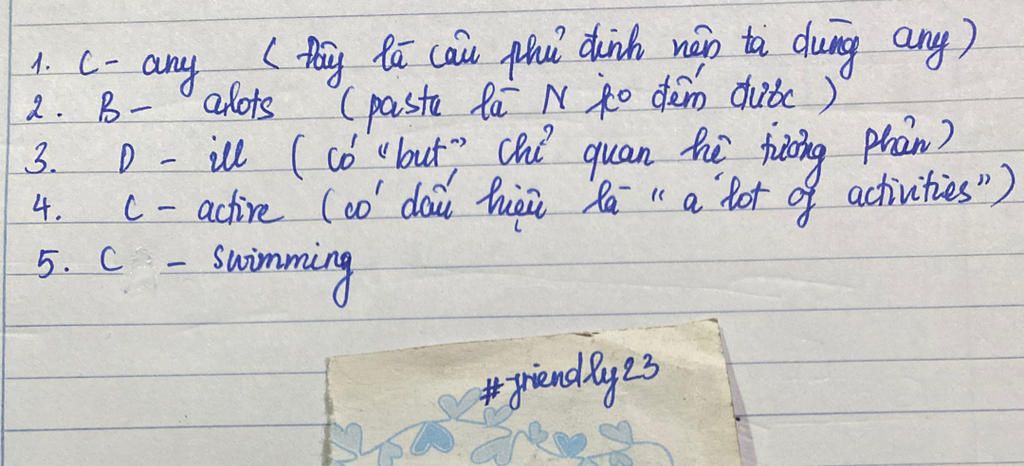 1. C - any (đây là câu phủ định nên ta dùng any)
2. B - alots (paste là N ko đếm được)
3. D - ill (có "but" chỉ quan hệ tương phản)
4. C - active (có dấu hiệu là "a lot of activities")
5. C - swimming
#friendly23